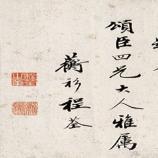 頌臣四兄大人雅属
蘅衫程荃